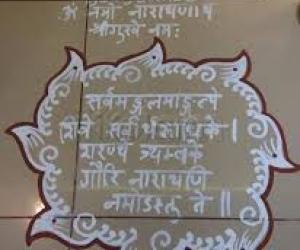 ॐ नमो नारायणाय
श्रीगुरवे नमः
सर्वमङ्गलमाङ्गल्ये
शिवे सर्वार्थसाधिके ।
शरण्ये त्र्यम्बके
गौरि नारायणि
नमोऽस्तु ते ॥